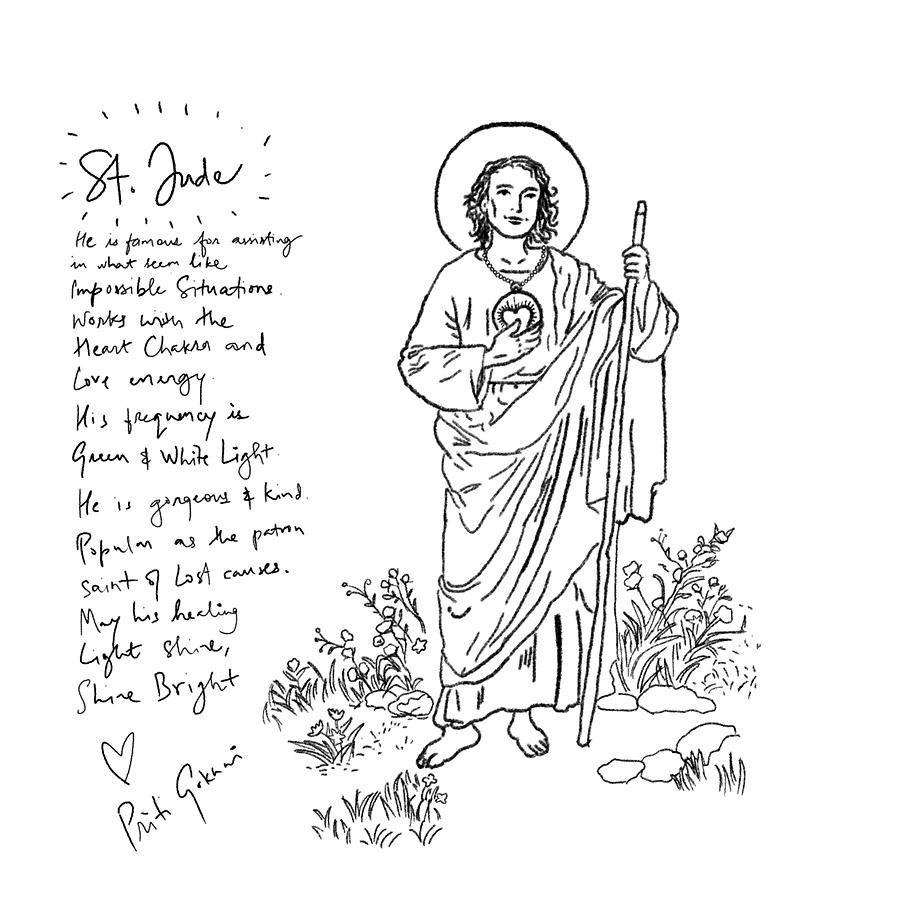 St. Jude
He is famous for assisting
in what seem like
Impossible Situations.
Works with the
Heart Chakra and
Love energy.
His frequency is
Green & White Light.
He is gorgeous & kind.
Popular as the patron
Saint of Lost causes.
May his healing
Light shine,
Shine Bright
Priti